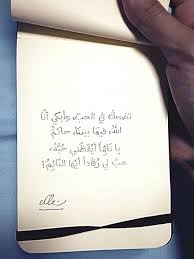 تضحك في الحب وأبكي أنا
اللهُ فيما بيننا حاكم
يا نائماً أيقظني حبُّهُ
هب لي رُقاداً أيُّها النّائِم!